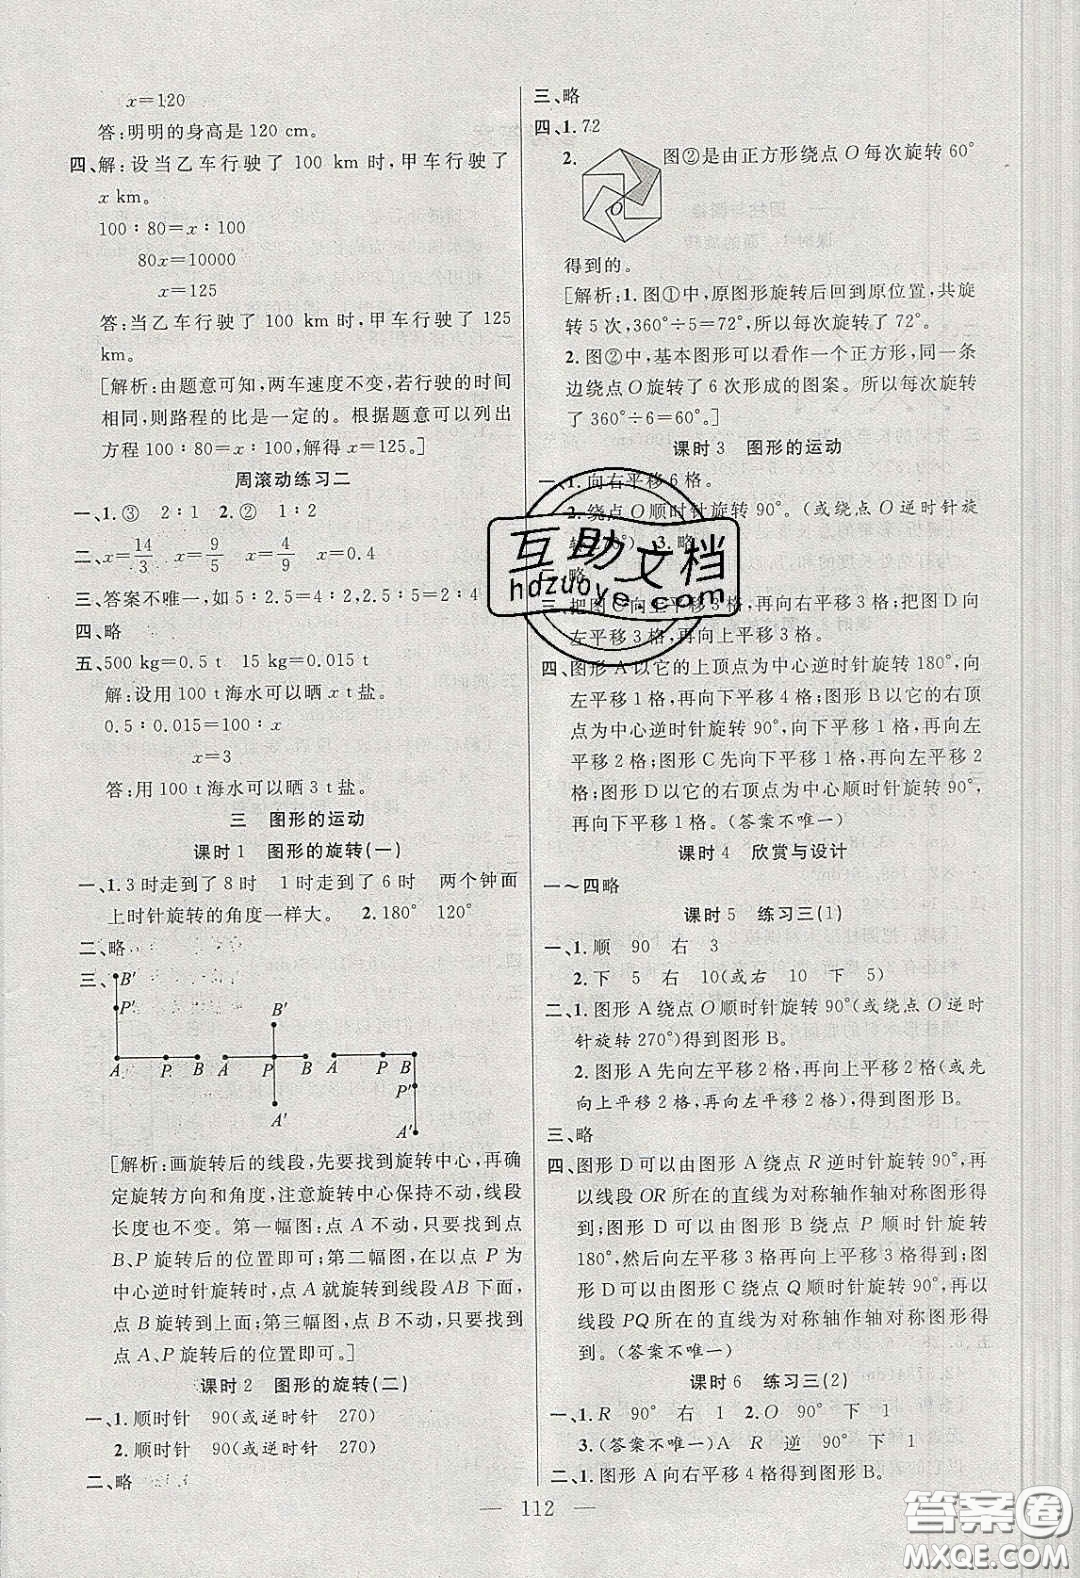 x=120
答:明明的身高是 120 cm。
四、解:设当乙车行驶了 100 km 时,甲车行驶了
x km。
100∶80=x∶100
80x=10000
x=125
答:当乙车行驶了 100 km 时,甲车行驶了 125
km。
[解析:由题意可知,两车速度不变,若行驶的时间
相同,则路程的比是一定的。根据题意可以列出
方程 100∶80=x∶100,解得 x=125。]
周滚动练习二
一、1.③ 2∶1 2.② 1∶2
二、x=14/3 x=9/5 x=4/9 x=0.4
三、答案不唯一,如 5∶2.5=4∶2,2.5∶5=2∶4
四、略
五、500 kg=0.5 t 15 kg=0.015 t
解:设用 100 t 海水可以晒 x t 盐。
0.5∶0.015=100∶x
x=3
答:用 100 t 海水可以晒 3 t 盐。
三 图形的运动
课时 1 图形的旋转(一)
一、1.3 时走到了 8 时 1 时走到了 6 时 两个钟面
上时针旋转的角度一样大。 2.180° 120°
二、略
三、
B′
P′
A P B
A P B
B′
A′
A P B
P′
A′
[解析:画旋转后的线段,先要找到旋转中心,再确
定旋转方向和角度,注意旋转中心保持不动,线段
长度也不变。第一幅图:点 A 不动,只要找到点
B、P 旋转后的位置即可;第二幅图,在以点 P 为
中心逆时针旋转时,点 A 就旋转到线段 AB 下面,
点 B 旋转到上面;第三幅图,点 B 不动,只要找到
点 A、P 旋转后的位置即可。]
课时 2 图形的旋转(二)
一、1.顺时针 90(或逆时针 270)
2.顺时针 90(或逆时针 270)
二、略
三、略
四、1.72
2.
O
图②是由正方形绕点 O 每次旋转 60°
得到的。
[解析:1.图①中,原图形旋转后回到原位置,共旋
转 5 次,360°÷5=72°,所以每次旋转了 72°。
2.图②中,基本图形可以看作一个正方形,同一条
边绕点 O 旋转了 6 次形成的图案。所以每次旋转
了 360°÷6=60°。]
课时 3 图形的运动
一、1.向右平移 6 格。
2.绕点 O 顺时针旋转 90°。(或绕点 O 逆时针旋
转 270°) 3.略
二、略
三、把图 C 向上平移 3 格,再向右平移 3 格;把图 D 向
左平移 3 格,再向上平移 3 格。
四、图形 A 以它的上顶点为中心逆时针旋转 180°,向
左平移 1 格,再向下平移 4 格;图形 B 以它的右顶
点为中心逆时针旋转 90°,向下平移 1 格,再向
左平移 2 格;图形 C 先向下平移 1 格,再向左平移
2 格;图形 D 以它的右顶点为中心顺时针旋转 90°,
再向下平移 1 格。(答案不唯一)
课时 4 欣赏与设计
一～四略
课时 5 练习三(1)
一、1.顺 90 右 3
2.下 5 右 10(或右 10 下 5)
二、1.图形 A 绕点 O 顺时针旋转 90°(或绕点 O 逆时
针旋转 270°)得到图形 B。
2.图形 A 先向左平移 2 格,再向上平移 2 格(或先
向上平移 2 格,再向左平移 2 格),得到图形 B。
三、略
四、图形 D 可以由图形 A 绕点 R 逆时针旋转 90°,再
以线段 OR 所在的直线为对称轴作轴对称图形得
到;图形 D 可以由图形 B 绕点 P 顺时针旋转
180°,然后向左平移 3 格再向上平移 3 格得到;图
形 D 可以由图形 C 绕点 Q 顺时针旋转 90°,再以
线段 PQ 所在的直线为对称轴作轴对称图形得
到。(答案不唯一)
课时 6 练习三(2)
一、1.R 90° 右 1 2.O 90° 下 1
3.(答案不唯一)A R 逆 90° 下 1
二、1.图形 A 向右平移 4 格得到图形 B。
— 112 —
互助文档
hdzuoye.com
答案圈
MXQE.COM